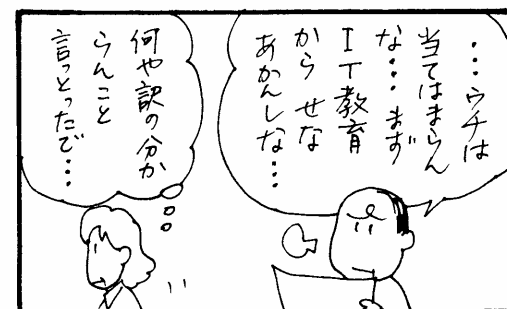 ・・・ウチは
当てはまらん
な・・・まず
IT教育
からせな
あかんしな・・・
何や訳の分か
らんこと
言っとったで・・・